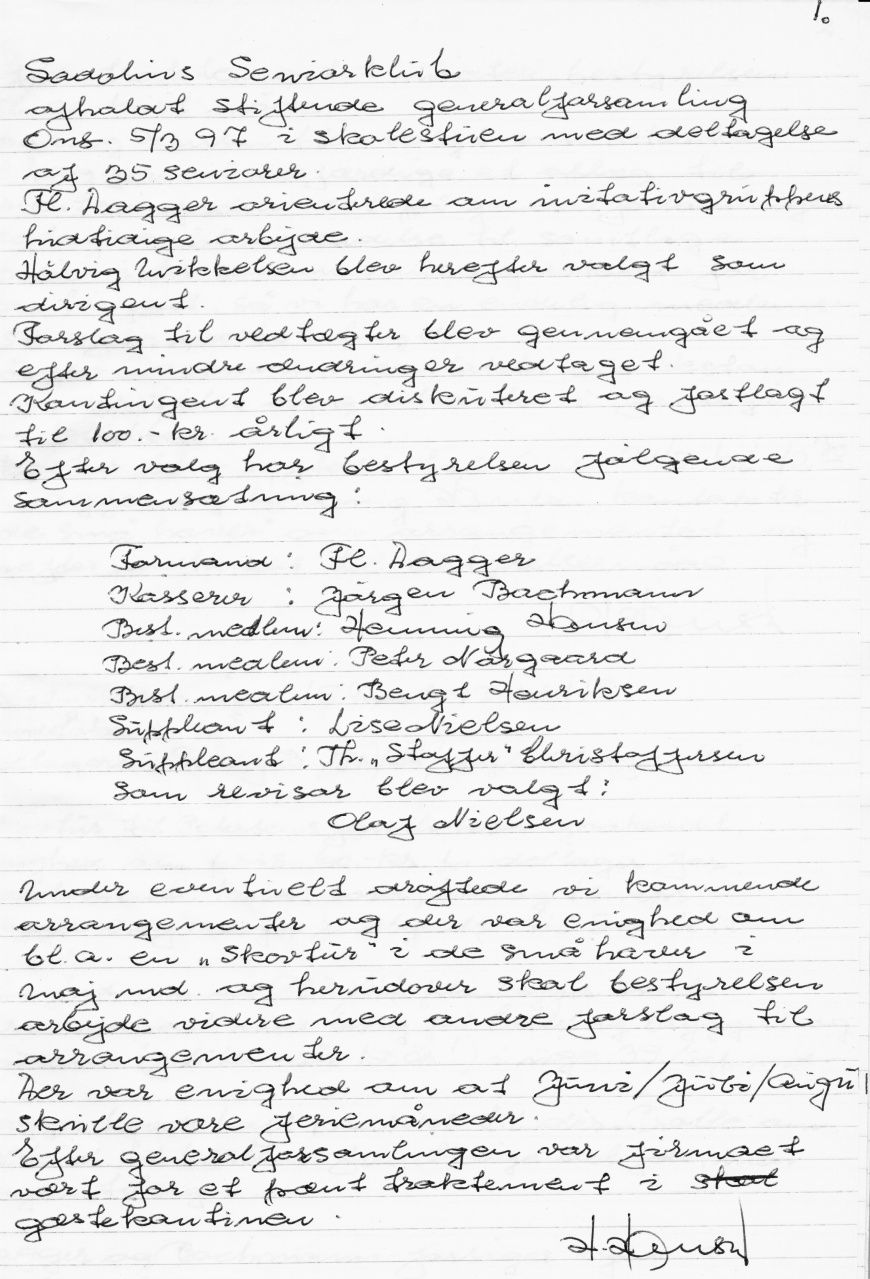 1.
Sadolins Seniorklub
afholdt stiftende generalforsamling
Ons. 5/3 97 i skolestuen med deltagelse
af 35 seniorer.
Fl. Dagger orienterede om initativgruppens
hidtidige arbejde.
Hålvig Mikkelsen blev herefter valgt som
dirigent.
Forslag til vedtægter blev gennemgået og
efter mindre ændringer vedtaget.
Kontingent blev diskuteret og fastlagt
til 100.- kr. årligt.
Efter valg har bestyrelsen følgende
sammensætning:
Formand: Fl. Dagger
Kasserer : Jørgen Bachmann
Best. medlem: Henning Hansen
Best. medlem: Peter Nørgaard
Best. medlem: Bengt Henriksen
Suppleant : Lise Nielsen
Suppleant : Th. „Stoffer" Christoffersen
Som revisor blev valgt:
Olaf Nielsen
Under eventuelt drøftede vi kommende
arrangementer og der var enighed om
bl.a. en „Skovtur" i de små haver i
maj md. og herudover skal bestyrelsen
arbejde videre med andre forslag til
arrangementer.
Der var enighed om at Juni/Juli/Augu
skulle være feriemåneder.
Efter generalforsamlingen var firmaet
vært for et pænt traktement i skal
gæstekantinen.
H. Hansen